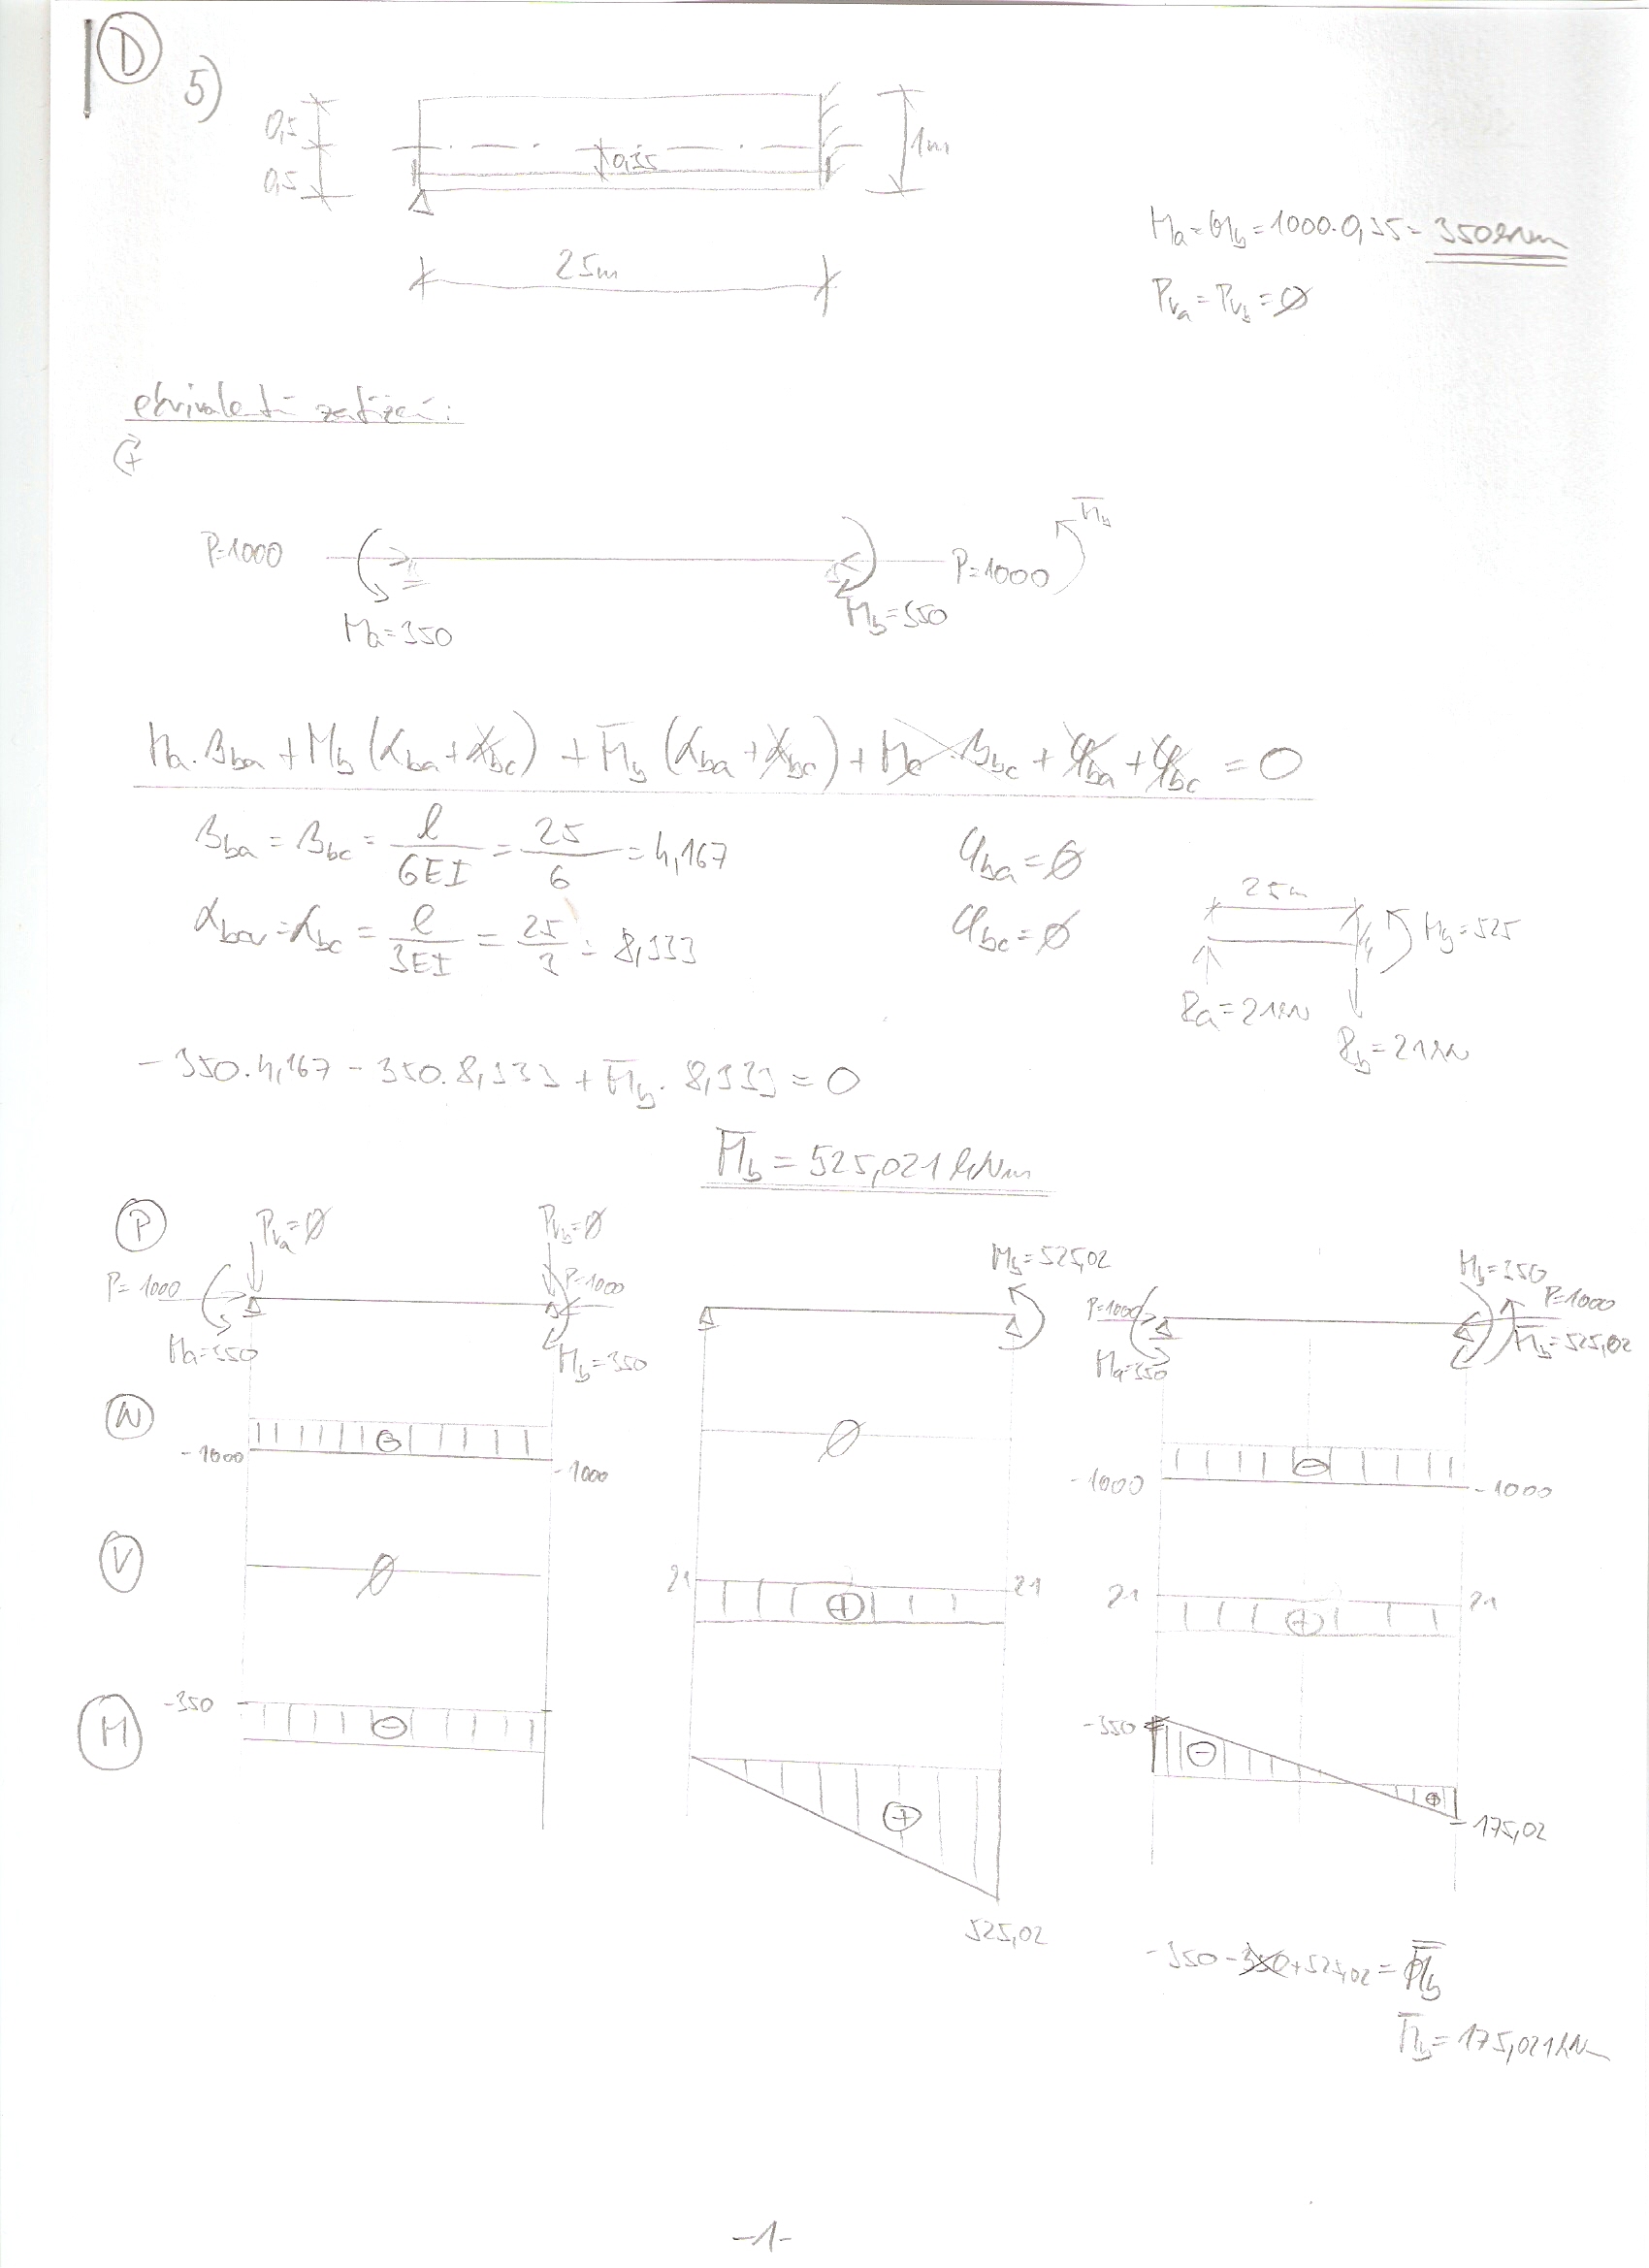 D 5)
0,5
0,5
0,35
1m
25m
Ma = Mb = 1000.0,35 = 350kNm
Pva = Pvb = Ø
ekvivalentní zatížení:
+
P=1000
Ma=350
Mb=350
P=1000
M̅b
Ma.βba + Mb (αba + αbc) + M̅b (αba + αbc) + Mc.βbc + φba + φbc = 0
βba = βbc = l/6EI = 25/6 = 4,167
φba = Ø
αba = αbc = l/3EI = 25/3 = 8,333
φbc = Ø
25m
Mb=525
Ra=21kN
Rb=21kN
-350.4,167 - 350.8,333 + M̅b.8,333 = 0
M̅b = 525,021 kNm
P
Pva=Ø
Pvb=Ø
P=1000
P=1000
Ma=350
Mb=350
Mb=525,02
Mb=350
P=1000
P=1000
Ma=350
M̅b=525,02
N
-1000
-1000
Ø
-1000
-1000
V
Ø
21
+
21
21
+
21
M
-350
-
+
525,02
-350
-
+
175,02
-350 -350 +525,02 = M̅b
M̅b = 175,021kNm
-1-